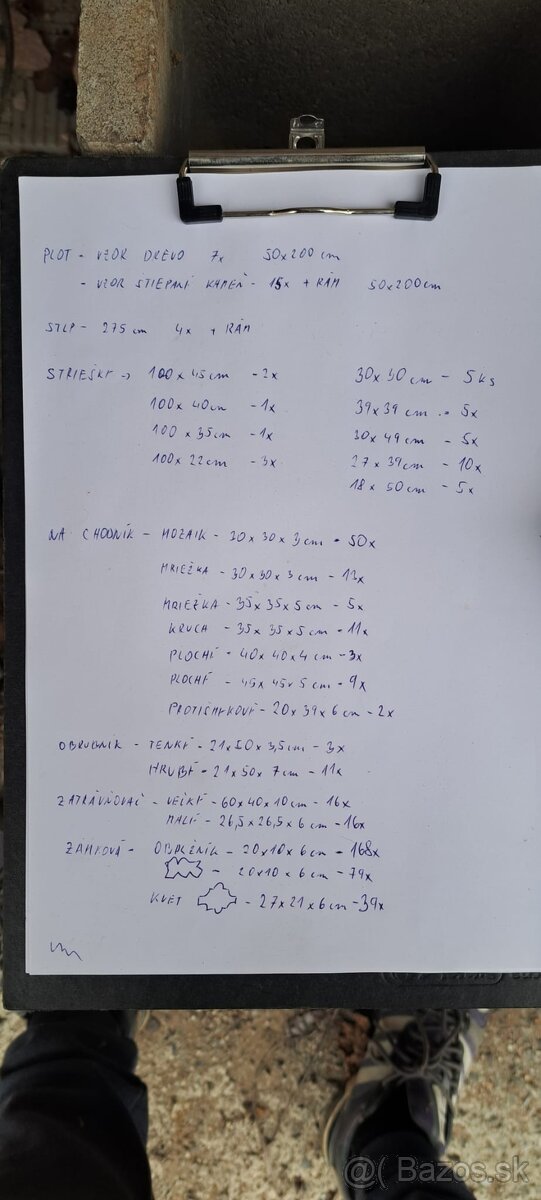 PLOT - VZOR DREVO 7x 50x200 cm
- VZOR ŠTIEPANÝ KAMEŇ - 15x + RÁM 50x200cm
STĹP - 275 cm 4x + RÁM
STRIEŠKY → 100 x 45 cm - 2x 30x30 cm - 5ks
100 x 40cm - 1x 39x39 cm - 5x
100 x 35cm - 1x 30x49 cm - 5x
100 x 22cm - 3x 27x39cm - 10x
18x50cm - 5x
NA CHODNÍK - MOZAIK - 30x30x3cm - 50x
MRIEŽKA - 30x30x3cm - 13x
MRIEŽKA - 35x35x5cm - 5x
KRUCH - 35x35x5cm - 11x
PLOCHÉ - 40x40x4cm - 3x
PLOCHÉ - 45x45x5cm - 9x
PROTIŠMYKOVÉ - 20x39x6cm - 2x
OBRUBNÍK - TENKÉ - 21x50x3,5cm - 3x
HRUBÉ - 21x50x7cm - 11x
ZATRÁVŇOVAČ - VEĽKÉ - 60x40x10cm - 16x
MALÉ - 26,5x26,5x6cm - 16x
ZÁMKOVÁ - OBDĹŽNIK - 20x10x6cm - 168x
- 20x10x6cm - 79x
KVET - 27x21x6cm - 39x
@ Bazos.sk